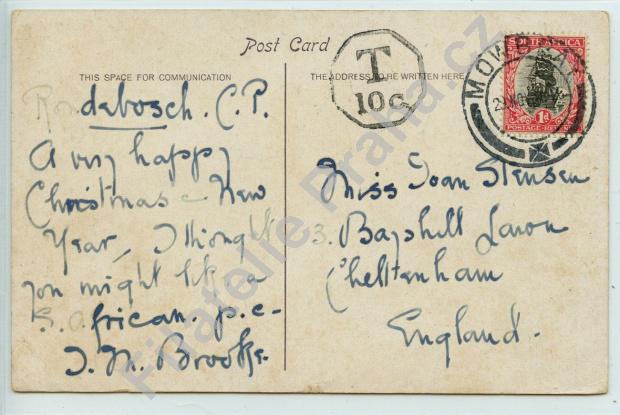 Post Card
THIS SPACE FOR COMMUNICATION
THE ADDRESS TO BE WRITTEN HERE
T
10c
SOUTH AFRICA
1d
POSTAGE-REVENUE
MOWBRAY
Rondebosch. C.P.
A very happy
Christmas & New
Year, I thought
you might like a
S. African. p.c.
J. M. Brooke.
Miss Joan Stensen
3. Bayshill Lawn
Cheltenham
England.
Filatelie Praha.cz